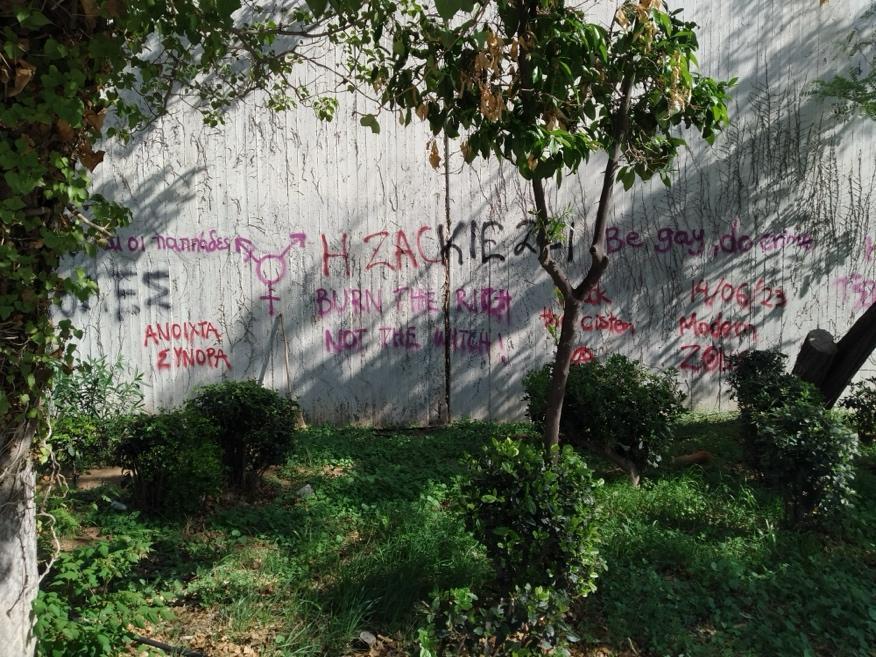 οι παππάδες
Η ZACKIE ΖΕΙ
Be gay, do crime
ΑΝΟΙΧΤΑ
ΣΥΝΟΡΑ
BURN THE RICH
NOT THE WITCH!
the cistem
14/06/23
Modern